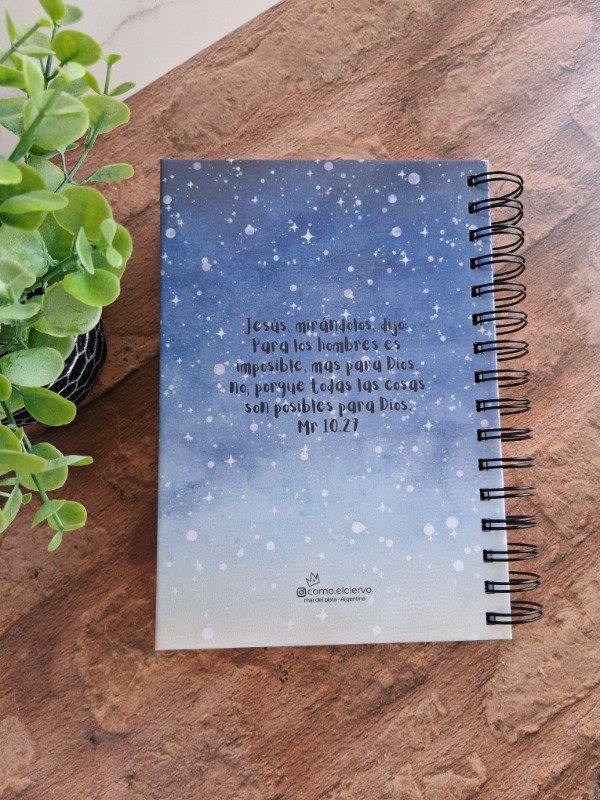 Jesús, mirándolos, dijo:
Para los hombres es
imposible, mas para Dios,
no; porque todas las cosas
son posibles para Dios.
Mr 10.27
como.elciervo
mar del plata - Argentina